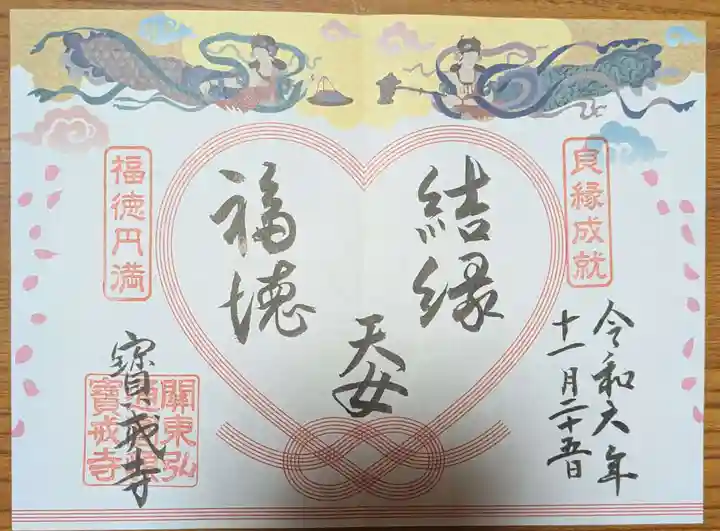 良縁成就
令和六年
十一月二十五日
結縁
福徳
天女
福徳円満
寶戒寺
關東弘
寶戒寺